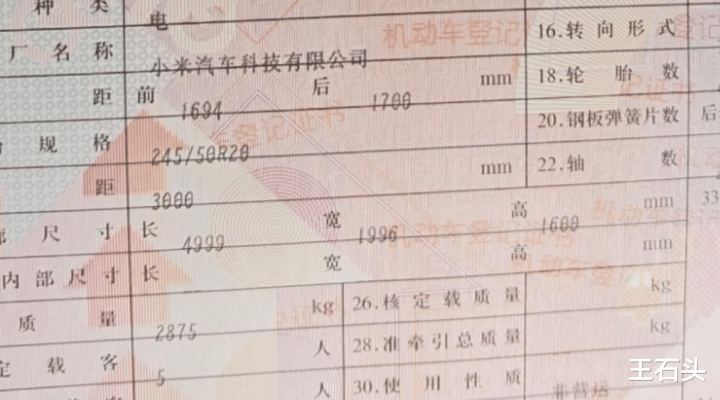 种 类 电 16.转 向 形 式
厂 名 称 小米汽车科技有限公司
距 前 1694 后 1700 mm 18.轮 胎 数
规 格 245/50R20 20.钢板弹簧片数 后
距 3000 mm 22.轴 数
尺 寸 长 4999 宽 1996 高 1600 mm 33
内 部 尺 寸 长 宽 高 mm
质 量 2875 kg 26.核 定 载 质 量 kg
定 载 客 5 人 28.准 牵 引 总 质 量 kg
人 30.使 用 性 质 非营运
王石头